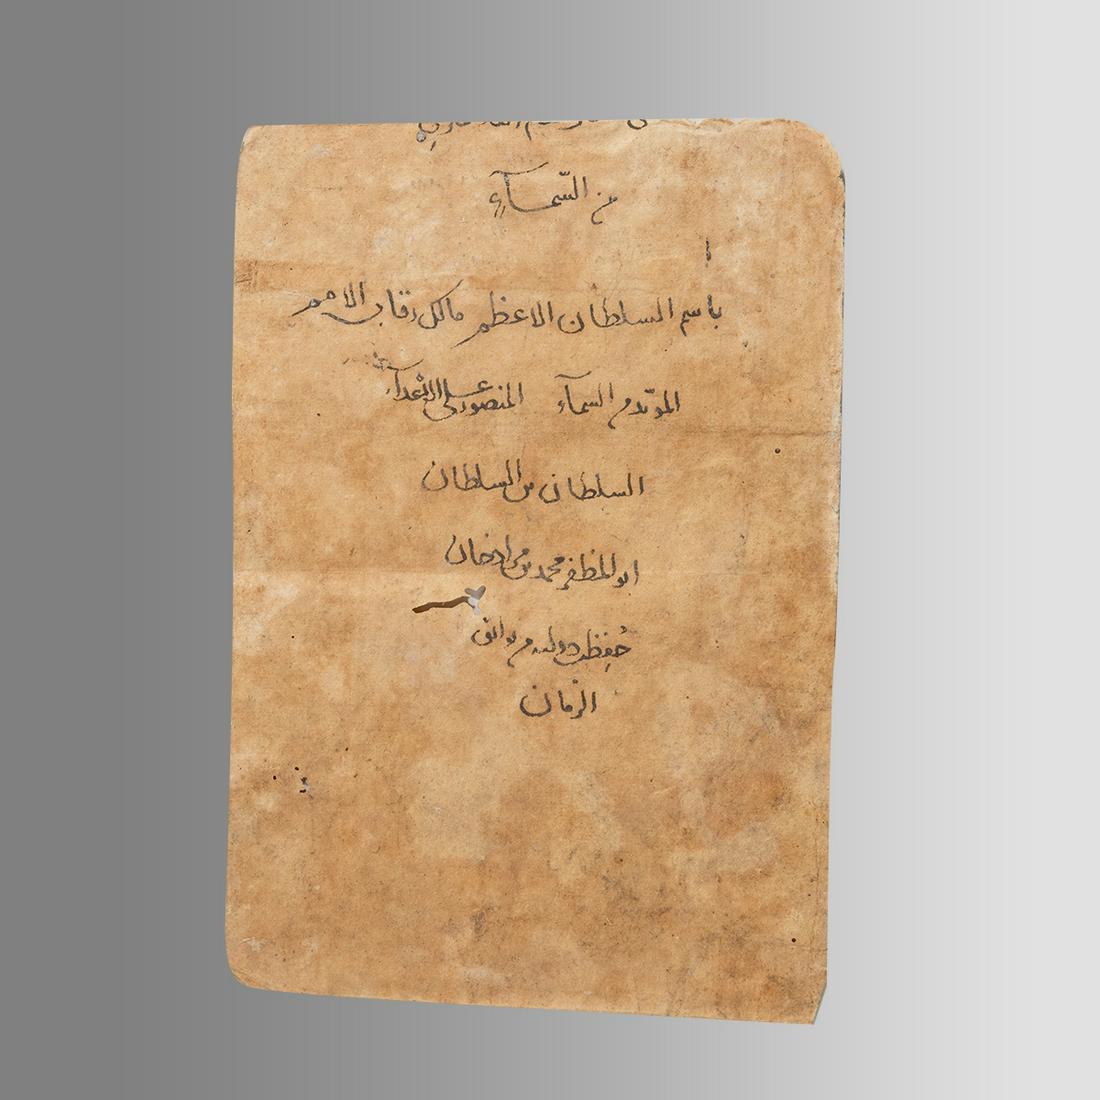 من السّمآءِ
باسم السلطان الاعظم مالك رقاب الامم
المؤيّد من السمآء المنصور على الاعدآء
السلطان بن السلطان
ابو المظفر محمد بن مرادخان
حُفِظت دولته من بوائق
الزمان